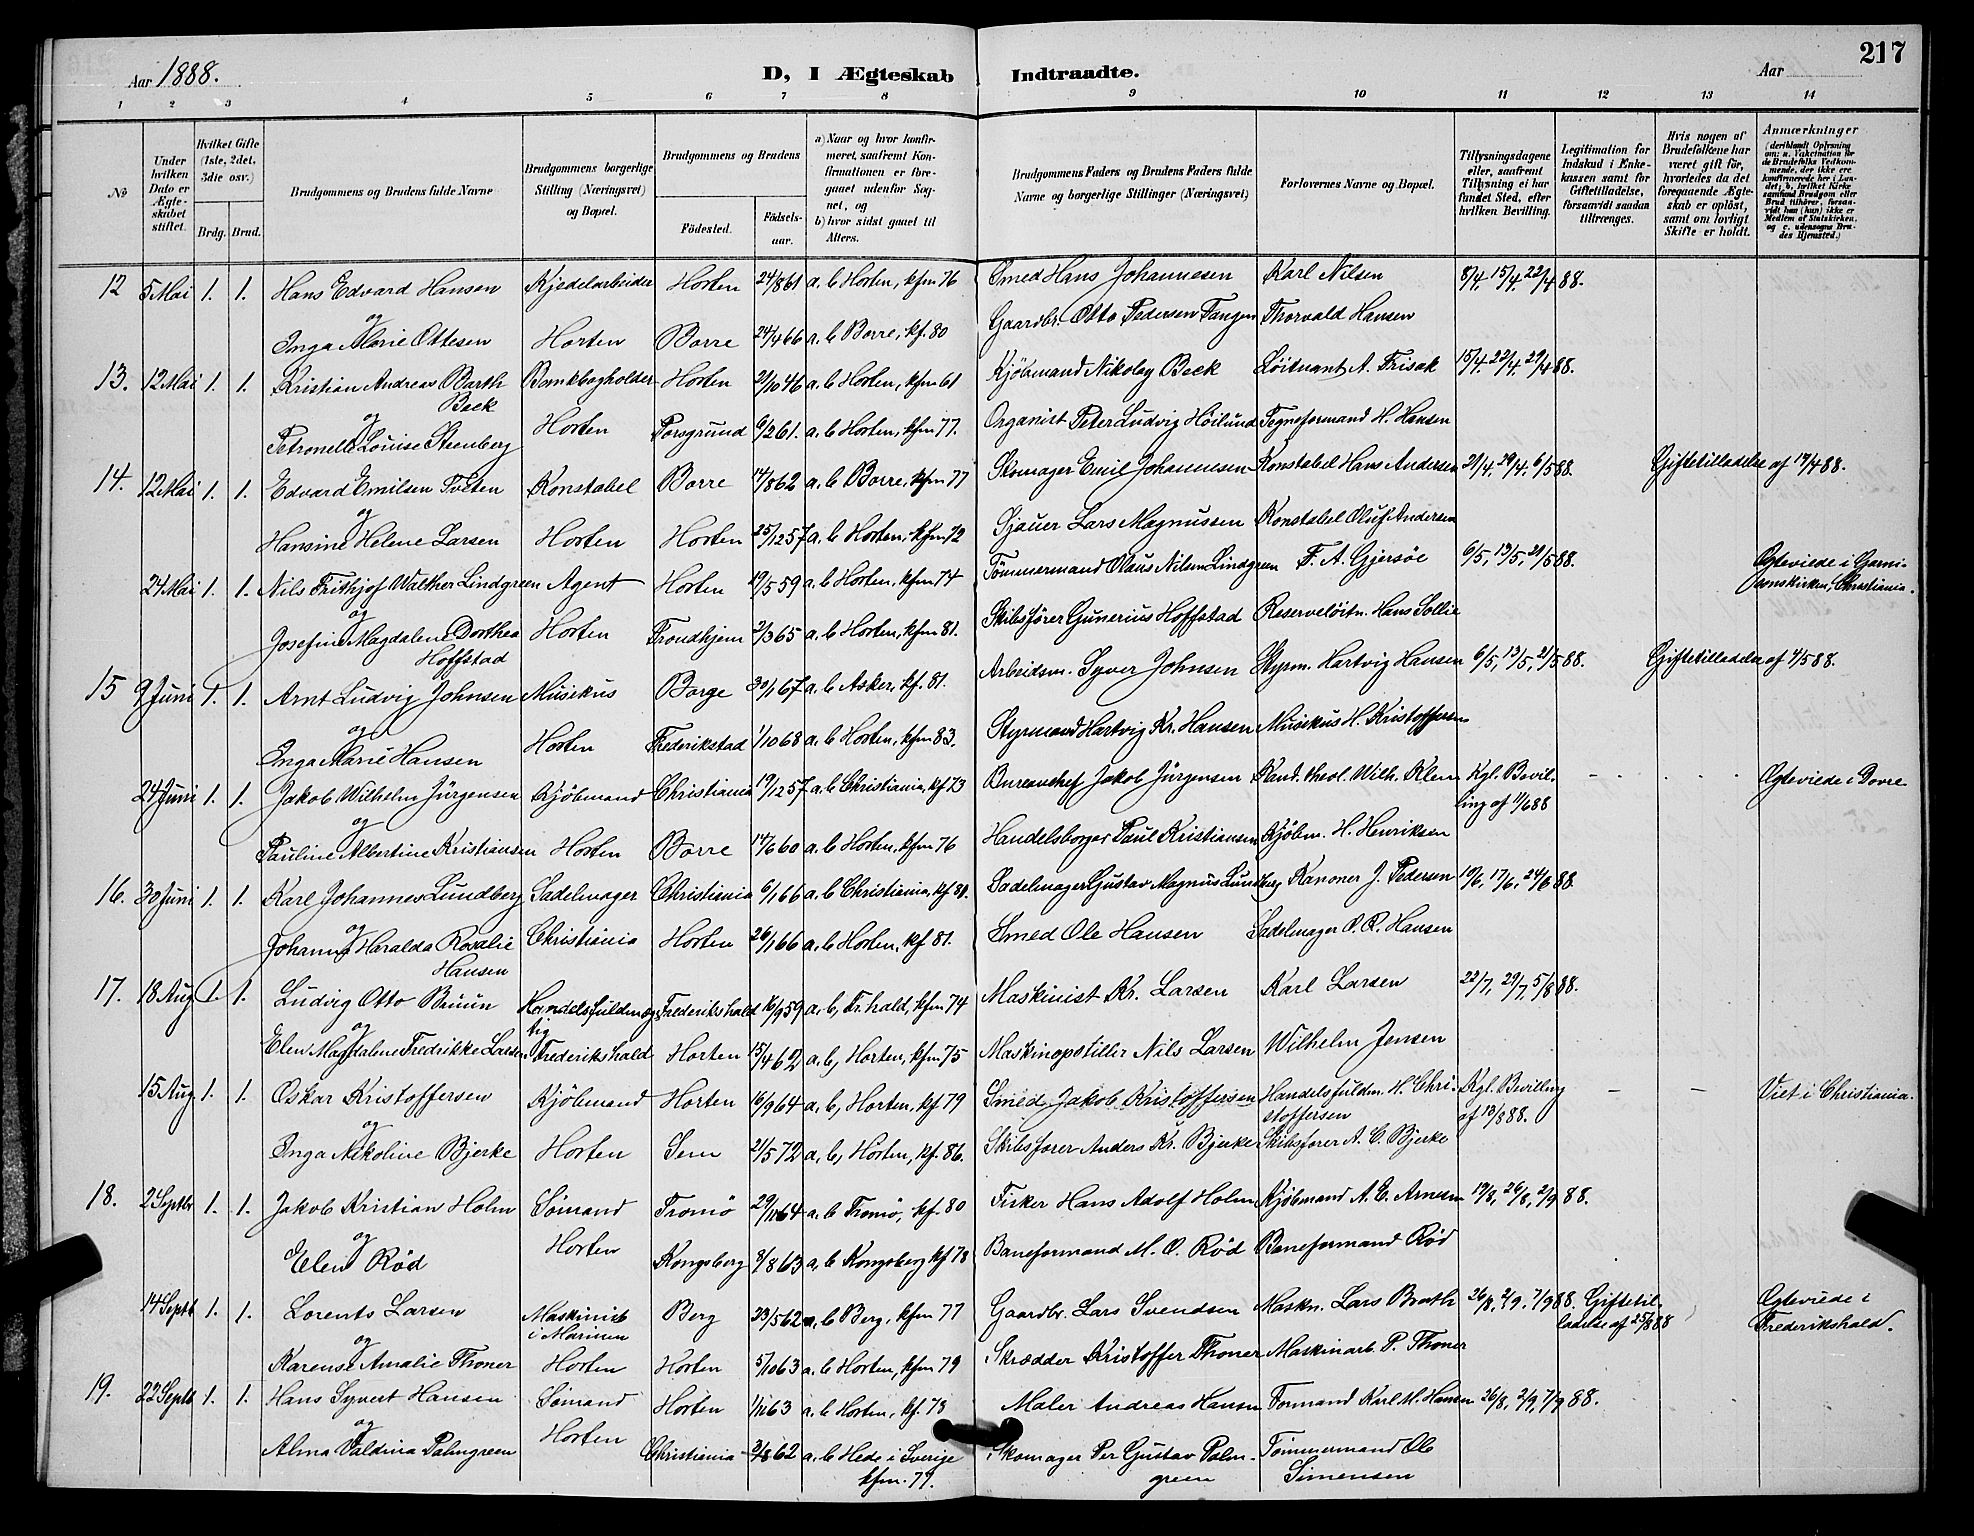 217
Aar 1888. D, I Ægteskab Indtraadte. Aar
1 2 3 4 5 6 7 8 9 10 11 12 13 14
№
Under hvilken Dato er Ægteskabet stiftet.
Hvilket Gifte (1ste, 2det, 3die osv.)
Brdg. Brud.
Brudgommens og Brudens fulde Navne
Brudgommens borgerlige Stilling (Næringsvei) og Bopæl.
Brudgommens og Brudens
Fødested. Fødselsaar.
a) Naar og hvor konfirmeret, saafremt Konfirmationen er foregaaet udenfor Sognet, og
b) hvor sidst gaaet til Alters.
Brudgommens Faders og Brudens Faders fulde Navne og borgerlige Stillinger (Næringsvei)
Forlovernes Navne og Bopæl.
Tillysningsdagene eller, saafremt Tillysning ei har fundet Sted, efter hvilken Bevilling.
Legitimation for Indskud i Enkekassen samt for Giftetilladelse, forsaavidt saadan tiltrænges.
Hvis nogen af Brudefolkene har været gift før, hvorledes da det foregaaende Ægteskab er opløst, samt om lovligt Skifte er holdt.
Anmærkninger (deriblandt Oplysning om: a. Vakcination for de Brudefolks Vedkommende, der ikke ere konfirmerede her i Landet; b. hvilket Kirkesamfund Brudgom eller Brud tilhører, forsaavidt han (hun) ikke er Medlem af Statskirken, og c. udensogns Brudes Hjemsted.)
12 5 Mai 1. 1. Hans Edvard Hansen Kjedelarbeider Horten 24/8 61 a. b Horten, kfm 76 Smed Hans Johannesen Karl Nilsen 8/4, 15/4, 22/4 88.
og
Inga Marie Ottesen Horten Borre 24/4 66 a. b Borre, kf. 80 Gaardbr. Otto Pedersen Tangen Thorvald Hansen
13. 12 Mai 1. 1. Kristian Andreas Barth Beck Bankbogholder Horten 21/10 46 a. b Horten, kfm 61 Kjöbmand Nikolay Beck Löitnant A. Frisak 15/4, 22/4, 29/4 88.
og
Petronelle Louise Steenberg Horten Porsgrund 6/2 61. a. b Horten, kfm 77. Organist Peter Ludvig Höilund Tegneformand H. Hansen
14. 12 Mai 1. 1. Edvard Emilsen Tveten Konstabel Borre 14/8 62 a. b Borre, kfm 77 Skomager Emil Johannesen Konstabel Hans Andersen 21/4, 29/4, 6/5 88. Giftetilladelse af 19/4 88.
og
Hansine Helene Larsen Horten Horten 25/12 57 a. b Horten, kfm 72 Sjauer Lars Magnussen Konstabel Oluf Andersen
24 Mai 1. 1. Nils Frithjof Walther Lindgreen Agent Horten 19/5 59 a. b Horten, kfm 74 Tömmermand Olaus Nilsen Lindgreen F. A. Gjersöe 6/5, 13/5, 21/5 88. Ægteviede i Garnisonskirken, Christiania.
og
Josefine Magdalene Dorthea Hoffstad Horten Trondhjem 2/3 65 a. b Horten, kfm 81. Skibsförer Gunerius Hoffstad Reservelöitn. Hans Sollie
15 9 Juni 1. 1. Arnt Ludvig Johnsen Musikus Borge 30/1 67 a. b Asker, kf. 81. Arbeidsm. Syver Johnsen Styrm. Hartvig Hansen 6/5, 13/5, 21/5 88. Giftetilladelse af 4/5 88.
og
Inga Marie Hansen Horten Frederikstad 1/10 68 a. b Horten, kfm 83. Styrmand Hartvig Kr. Hansen Musikus H. Kristoffersen
24 Juni 1. 1. Jakob Wilhelm Jürgensen Kjöbmand Christiania 19/12 57 a. b Christiania, kf 73 Bureauchef Jakob Jürgensen Kand. theol. Wilh. Klem Kgl. Bevilling af 11/6 88 Ægteviede i Dovre
og
Pauline Albertine Kristiansen Horten Borre 14/6 60 a. b Horten, kfm 76 Handelsborger Paul Kristiansen Kjöbm. H. Henriksen
16. 30 Juni 1. 1. Karl Johannes Lundberg Sadelmager Christiania 6/1 66 a. b Christiania, kf 80. Sadelmager Gustav Magnus Lundberg Kanoner J. Pedersen 10/6, 17/6, 24/6 88.
og
Johanne Haralda Rosalie Hansen Christiania Horten 26/1 66 a. b Horten, kf 81. Smed Ole Hansen Sadelmager O. R. Hansen
17. 18 Aug 1. 1. Ludvig Otto Bruun Handelsfuldmægtig Frederikshald 16/9 59 a. b, Fr.hald, kfm 74 Maskinist Kr. Larsen Karl Larsen 22/7, 29/7, 5/8 88.
og
Elen Magdalene Fredrikke Larsen Frederikshald Horten 15/4 62 a. b, Horten, kfm 75 Maskinopstiller Nils Larsen Wilhelm Jensen
15 Aug 1. 1. Oskar Kristoffersen Kjöbmand Horten 16/9 64 a. b, Horten, kf 79 Smed Jakob Kristoffersen Handelsfuldm. H. Christoffersen Kgl. Bevilling af 13/8 88. – – Viet i Christiania.
og
Inga Nikoline Bjerke Horten Sem 21/5 72 a. b, Horten, kf. 86. Skibsförer Anders Kr. Bjerke Skibsförer A. C. Bjerke
18. 2 Septbr 1. 1. Jakob Kristian Holm Sömand Tromö 29/11 64 a. b Tromö, kf. 80 Fisker Hans Adolf Holm Kjöbmand A. E. Arnesen 19/8, 26/8, 2/9 88.
og
Elen Röd Horten Kongsberg 8/8 63 a. b Kongsberg kf 78 Baneformand M. O. Röd Baneformand Röd
14 Septb 1. 1. Lorents Larsen Maskinist i Marinen Berg 23/5 62 a. b Berg, kfm 77 Gaardbr. Lars Svendsen Maskn. Lars Brath 26/8, 2/9. 7/9 88. Giftetilladelse af 25/8 88 Ægteviede i Frederikshald.
og
Karense Amalie Thoner Horten Horten 5/10 63 a. b Horten, kfm 79 Skrædder Kristoffer Thoner Maskinarb. P. Thoner
19. 22 Septb 1. 1. Hans Syvert Hansen Sömand Horten 1/11 63 a. b Horten, kf. 78 Maler Andreas Hansen Formand Karl M. Hansen 26/8, 2/9, 7/9 88.
og
Alma Valdina Palmgreen Horten Christiania 2/8 62 a. b Hede i Sverige kfm. 77. Skomager Per Gustav Palmgreen Tömmermand Ole Simensen